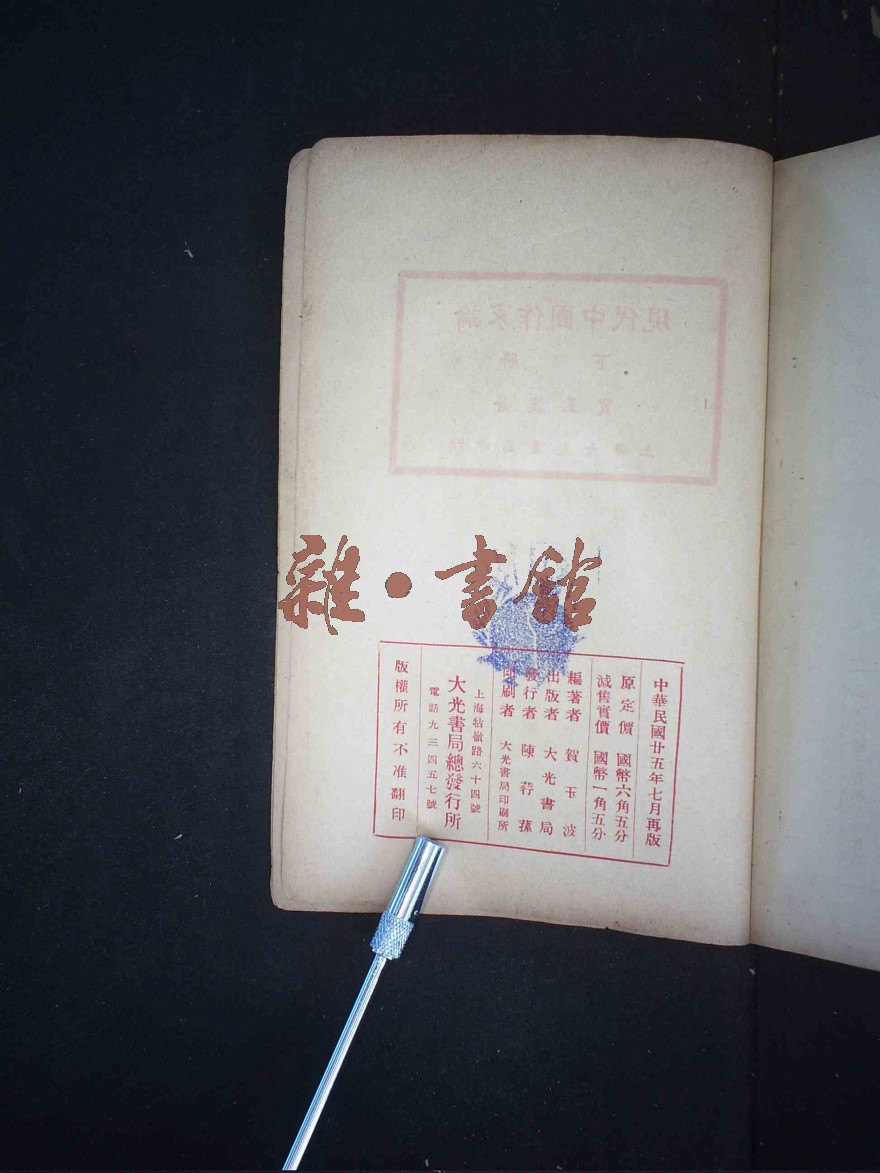 現代中國作家論
下冊
賀玉波著
上海大光書局印行
雜·書館
中華民國廿五年七月再版
原定價 國幣六角五分
減售實價 國幣一角五分
編著者 賀玉波
出版者 大光書局
發行者 陳荇蓀
印刷者 大光書局印刷所
上海牯嶺路六十四號
大光書局總發行所
電話九三四五七號
版權所有不准翻印